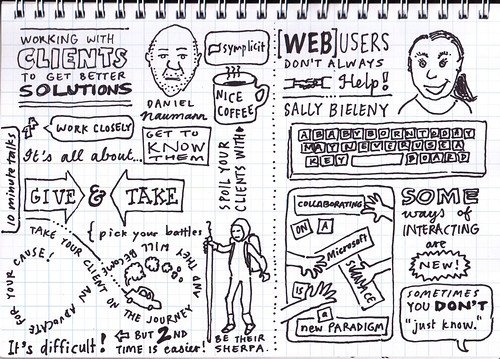 WORKING WITH
CLIENTS
TO GET BETTER
SOLUTIONS
DANIEL
Naumann
symplicit
NICE
COFFEE
10 minute talks
WORK CLOSELY
It's all about...
GET TO
KNOW
THEM
SPOIL YOUR
CLIENTS WITH ♥
GIVE & TAKE
{ pick your battles
TAKE YOUR CLIENT ON THE JOURNEY
AND THEY WILL BECOME
AN ADVOCATE
FOR YOUR CAUSE!
It's difficult!
← BUT 2ND
TIME is easier!
BE THEIR
SHERPA.
[WEB] USERS
DON'T ALWAYS
Help!
SALLY BIELENY
A BABY BORN TODAY
MAY NEVER USE A
KEY BOARD
COLLABORATING
ON A
Microsoft
SURFACE
IS
a
new PARADIGM
SOME
ways of
INTERACTING
are
NEW!
SOMETIMES
YOU DON'T
"just know."